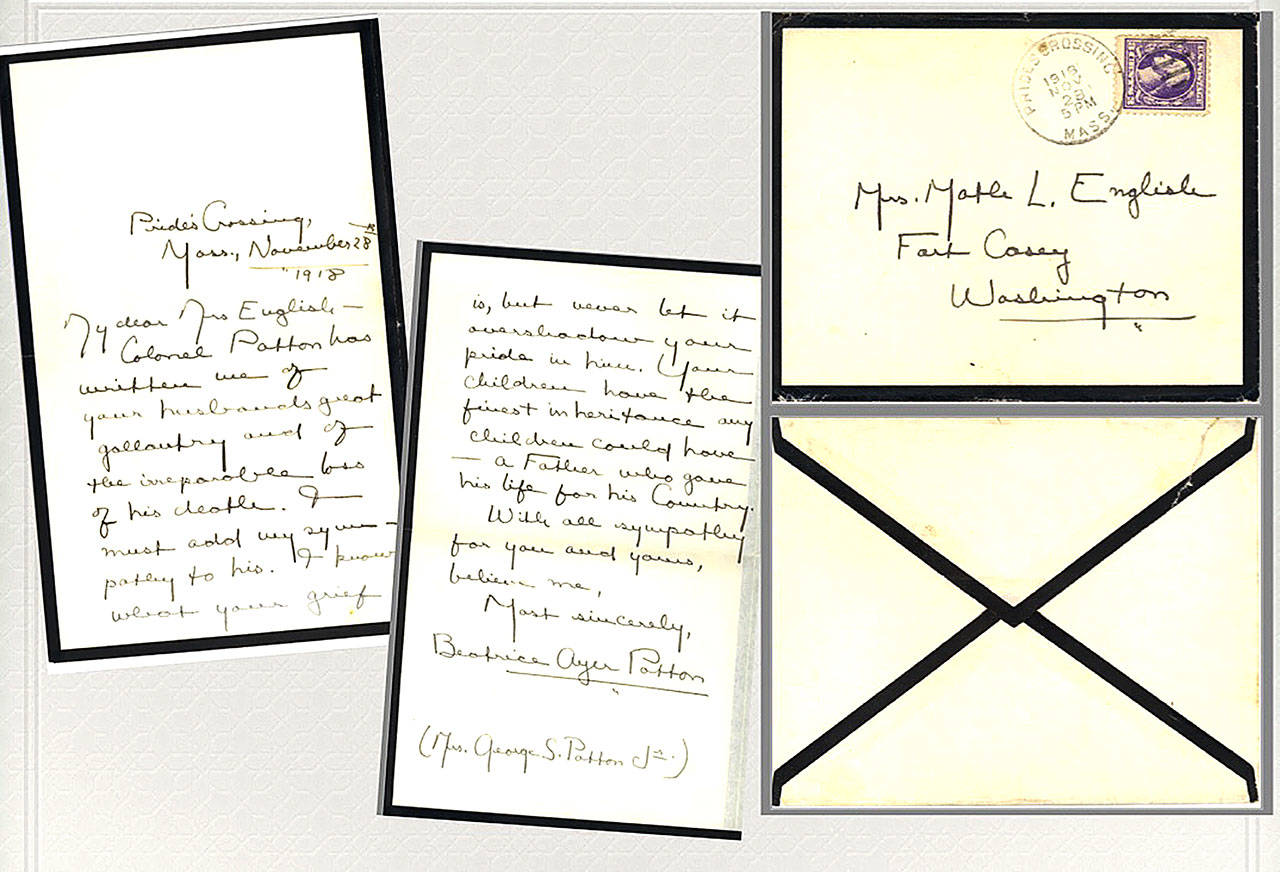 Pride's Crossing,
Mass., November 28th
1918
My dear Mrs English –
Colonel Patton has
written me of
your husbands great
gallantry and of
the irreparable loss
of his death. I
must add my sym-
pathy to his. I know
what your grief
is, but never let it
overshadow your
pride in him. Your
children have the
finest inheritance any
children could have
– a Father who gave
his life for his Country.
With all sympathy
for you and yours,
believe me,
Most sincerely,
Beatrice Ayer Patton
(Mrs. George S. Patton Jr.)
PRIDES CROSSING
1918
NOV
5 PM
MASS.
Mrs. Matle L. English
Fort Casey
Washington